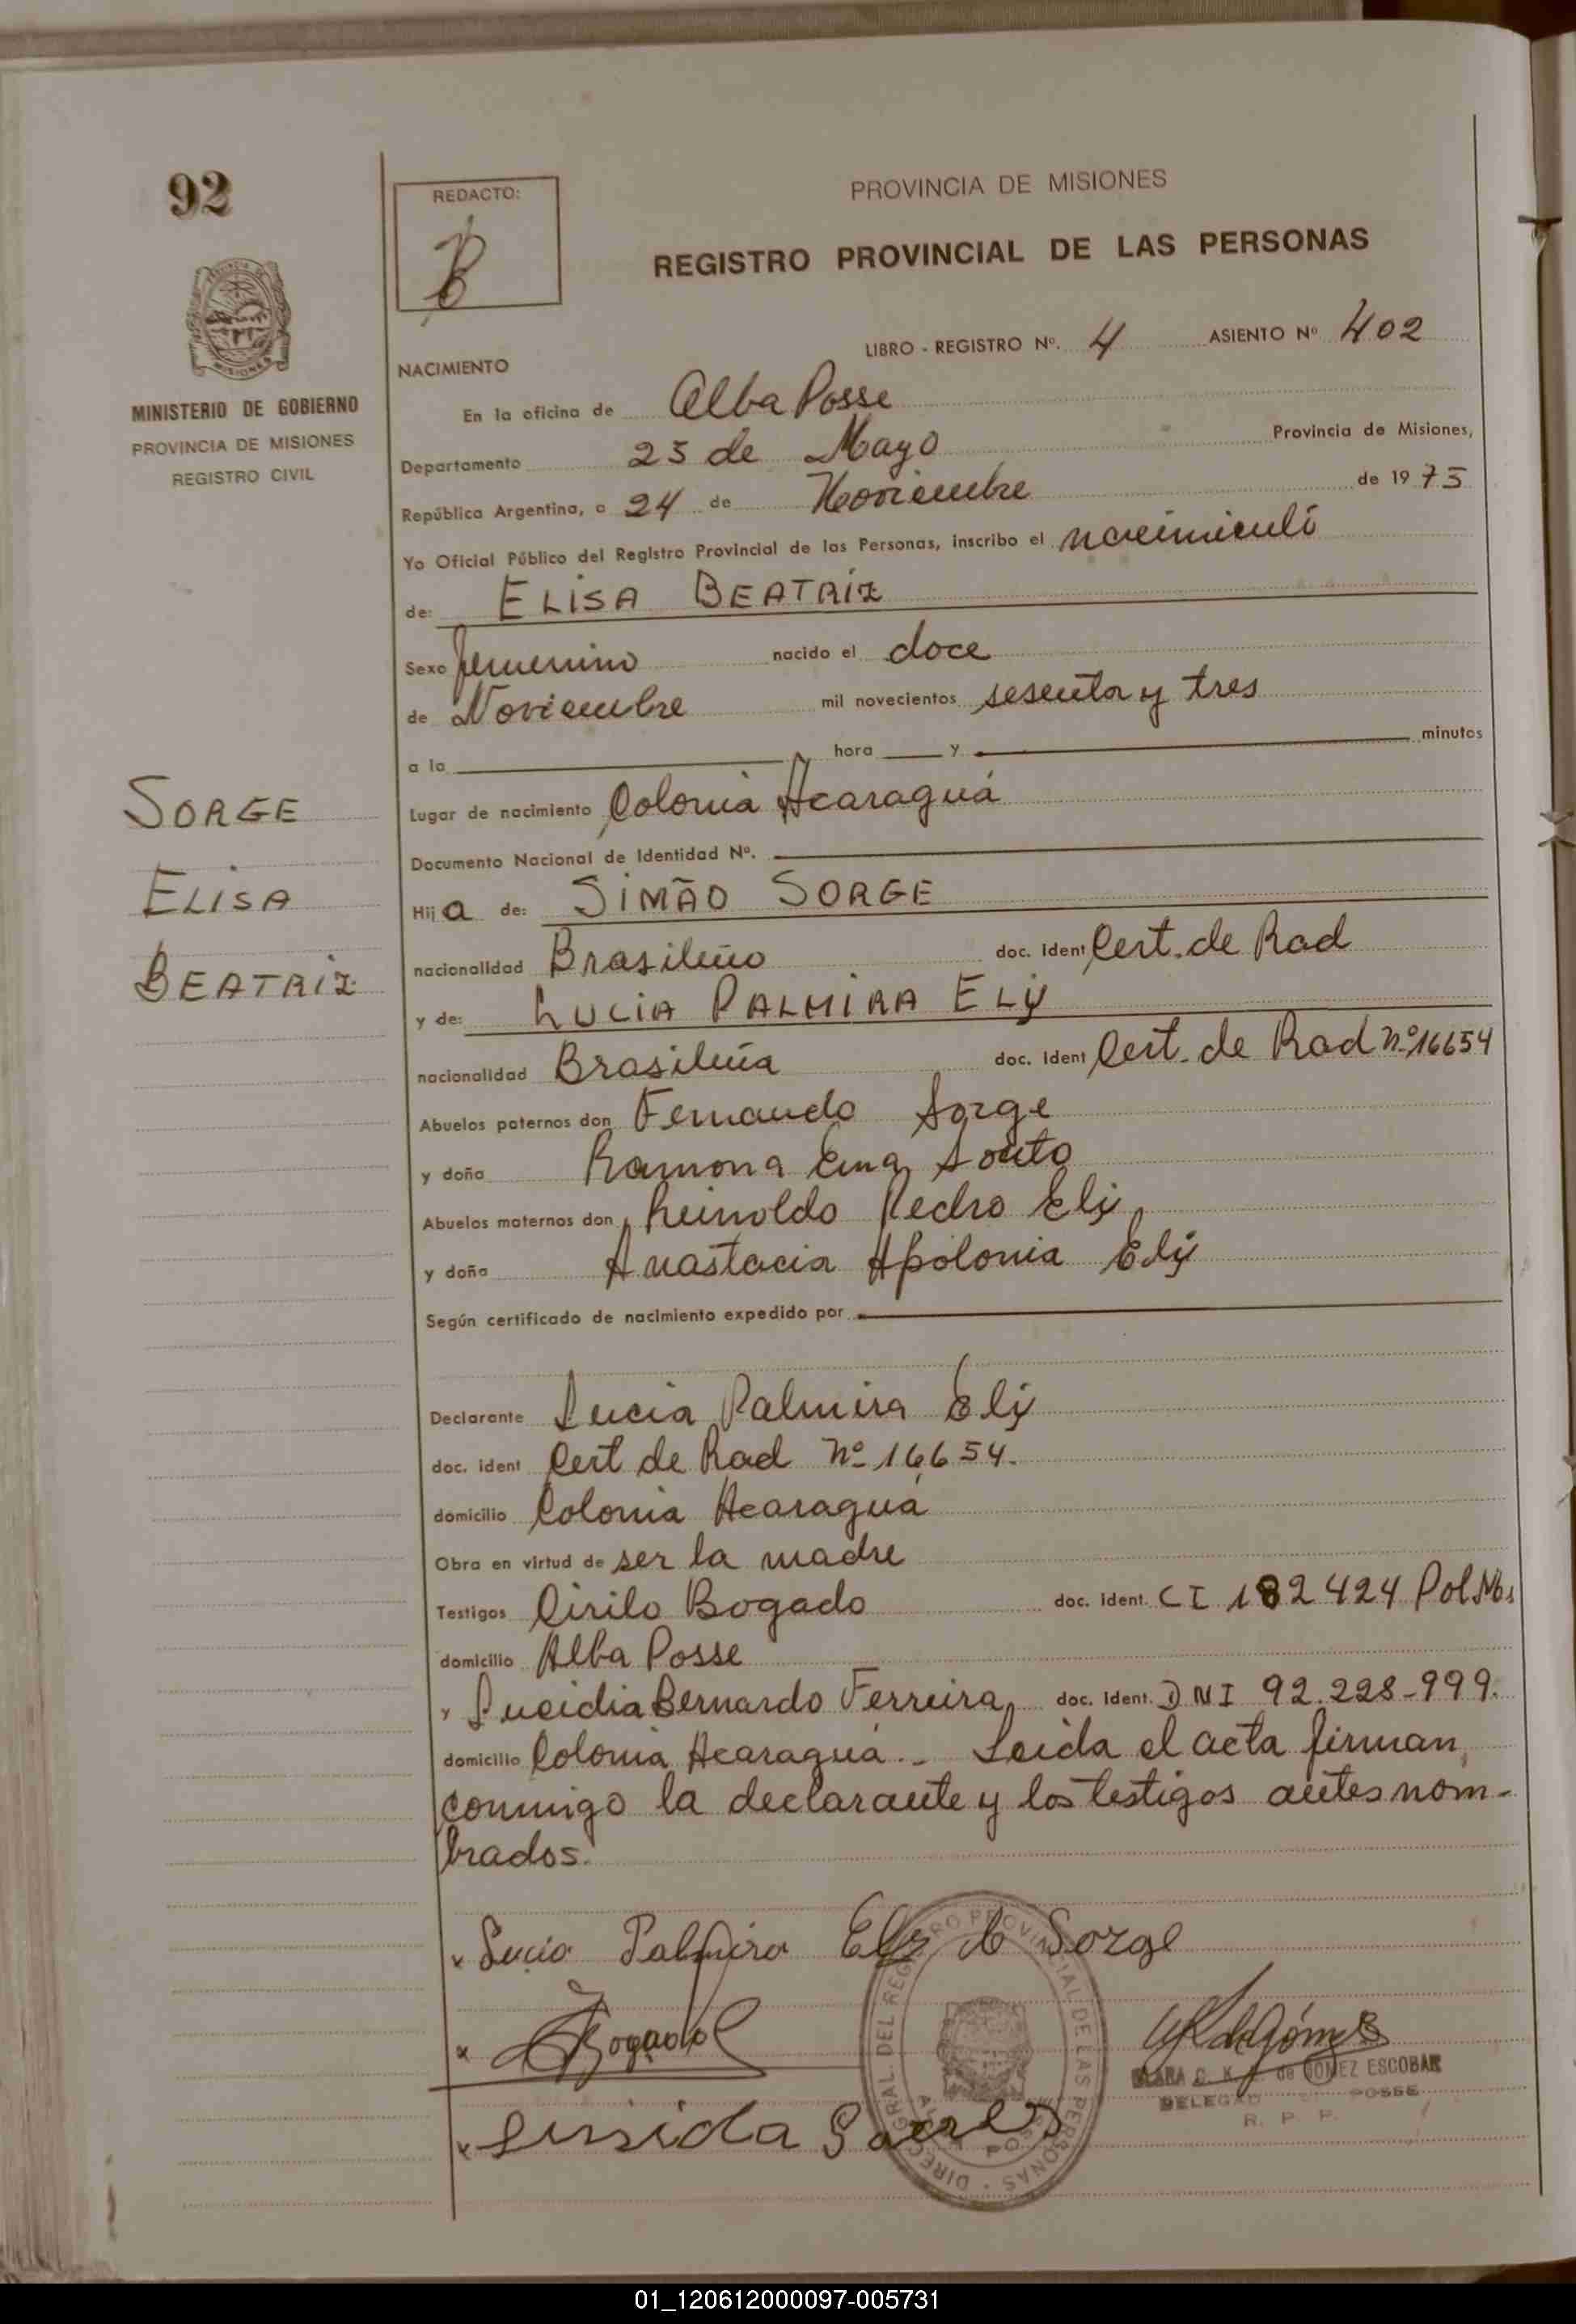 92
MINISTERIO DE GOBIERNO
PROVINCIA DE MISIONES
REGISTRO CIVIL
SORGE
ELISA
BEATRIZ
REDACTO:
PROVINCIA DE MISIONES
REGISTRO PROVINCIAL DE LAS PERSONAS
LIBRO - REGISTRO Nº. 4 ASIENTO Nº 402
NACIMIENTO
En la oficina de Alba Posse
Departamento 25 de Mayo Provincia de Misiones,
República Argentina, a 24 de Noviembre de 1975
Yo Oficial Público del Registro Provincial de las Personas, inscribo el nacimiento
de: ELISA BEATRIZ
Sexo femenino nacido el doce
de Noviembre mil novecientos sesenta y tres
a la hora y minutos
Lugar de nacimiento Colonia Acaraguá
Documento Nacional de Identidad Nº.
Hija de: SIMÃO SORGE
nacionalidad Brasileño doc. ident Cert. de Rad
y de: LUCIA PALMIRA ELY
nacionalidad Brasileña doc. ident Cert. de Rad Nº 16654
Abuelos paternos don Fernando Sorge
y doña Ramona Ema Souto
Abuelos maternos don Reinoldo Pedro Ely
y doña Anastacia Apolonia Ely
Según certificado de nacimiento expedido por
Declarante Lucia Palmira Ely
doc. ident Cert de Rad Nº 16654.
domicilio Colonia Acaraguá
Obra en virtud de ser la madre
Testigos Cirilo Bogado doc. ident. CI 182424 Pol.Mns
domicilio Alba Posse
y Lucidia Bernardo Ferreira doc. ident. DNI 92.228-999.
domicilio Colonia Acaraguá.- Leída el acta firman
conmigo la declarante y los testigos antes nom-
brados.
x Lucia Palmira Ely de Sorge
x Bogado
DIREC. GRAL. DEL REGISTRO PROVINCIAL DE LAS PERSONAS
de GOMEZ ESCOBAR
POSSE
R. P. P.
01_120612000097-005731